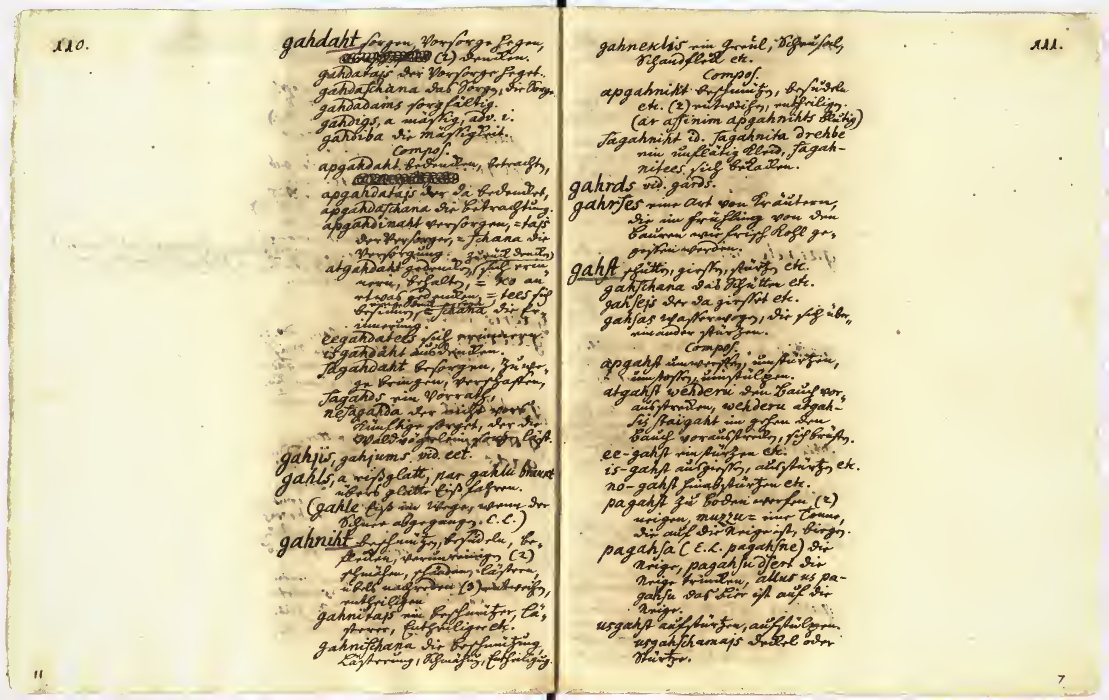 110.
gahdaht sorgen, Vorsorge hegen,
(2) dencken.
gahdatajs der Vorsorge heget.
gahdaschana das Sorgen, die Sorge
gahdadams sorgfältig.
gahdigs, a mässig, adv. i.
gahdiba die mässigkeit.
Compos.
apgahdaht bedencken, betrachten,
apgahdatajs der da bedencket,
apgahdaschana die betrachtung.
apgahdinaht versorgen, =tajs
der Versorger, =schana die
Versorgung. zurück dencken
atgahdaht gedencken, sich erin-
nern, behalten, = ko an
etwas gedencken, =tees sich
besinnen, =schana die Er-
innerung.
eegahdatees sich erinnern
isgahdaht ausdencken.
sagahdaht besorgen, zu we-
ge bringen, verschaffen,
sagahds ein Vorrath,
nesagahda der nicht vors
künftige sorget, der die
Waldvögelein sorgen läst.
gahjis, gahjums vid. eet.
gahls, a eißglatt, par gahlu braukt
übers glatte Eiß fahren.
(gahle Eiß im Wege, wenn der
Schnee abgegangen. E.L.)
gahniht beschmützen, besudeln, be-
flecken, verunreinigen (2)
schmähen, schänden, lästern,
übels nachreden (3) entweihen,
entheiligen
gahnitajs ein beschmützer, Lä-
sterer, Entheiliger etc.
gahnischana die beschmützung,
Lästerung, Schmähung, Entheiligung.
11
111.
gahneklis ein Greul, Scheusal,
Schandfleck etc.
Compos.
apgahniht beschmützen, besudeln
etc. (2) entweihen, entheiligen.
(ar assinim apgahnihts blutig)
sagahniht id. sagahnita drehbe
ein unflätig Kleid, sagah-
nitees sich beklacken.
gahrds vid. gards.
gahrses eine Art von Kräutern,
die im Frühling von den
Bauren wie frisch Kohl ge-
gessen werden.
gahst schütten, giessen, stürzen etc.
gahschana das Schütten etc.
gahsejs der da giesset etc.
gahsas Wasserwogen, die sich über
einander stürzen.
Compos.
apgahst umwerffen, umstürzen,
umstossen, umstülpen.
atgahst wehderu den Bauch vor-
ausstrecken, wehderu atgah-
sis staigaht im gehen den
Bauch vorausstrecken, sich brüsten.
ee-gahst einstürzen etc.
is-gahst ausgiessen, ausstürzen etc.
no-gahst hinabstürzen etc.
pagahst zu boden werfen (2)
neigen, muzzu= eine Tonne,
die auf die Neige ist, biegen.
pagahsa (E.L. pagahsne) die
Neige, pagahsu dsert die
Neige trincken, allus us pa-
gahsu das Bier ist auf die
Neige.
usgahst aufstürzen, aufstülpen
usgahschamajs Deckel oder
Stürtze.
7